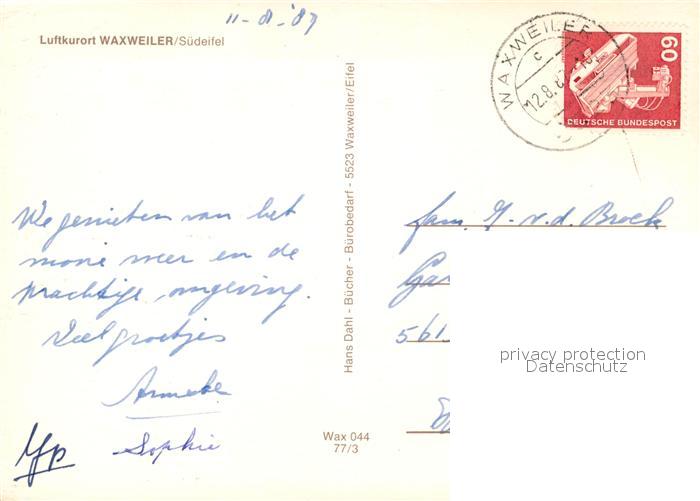 11-8-'87
Luftkurort WAXWEILER/Südeifel
WAXWEILER
c
12.8.8
60
DEUTSCHE BUNDESPOST
We genieten van het
mooie weer en de
prachtige omgeving.
Veel groetjes
Anneke
Sophie
Hans Dahl - Bücher - Bürobedarf - 5523 Waxweiler/Eifel
Wax 044
77/3
fam. v.d. Broek
561
privacy protection
Datenschutz